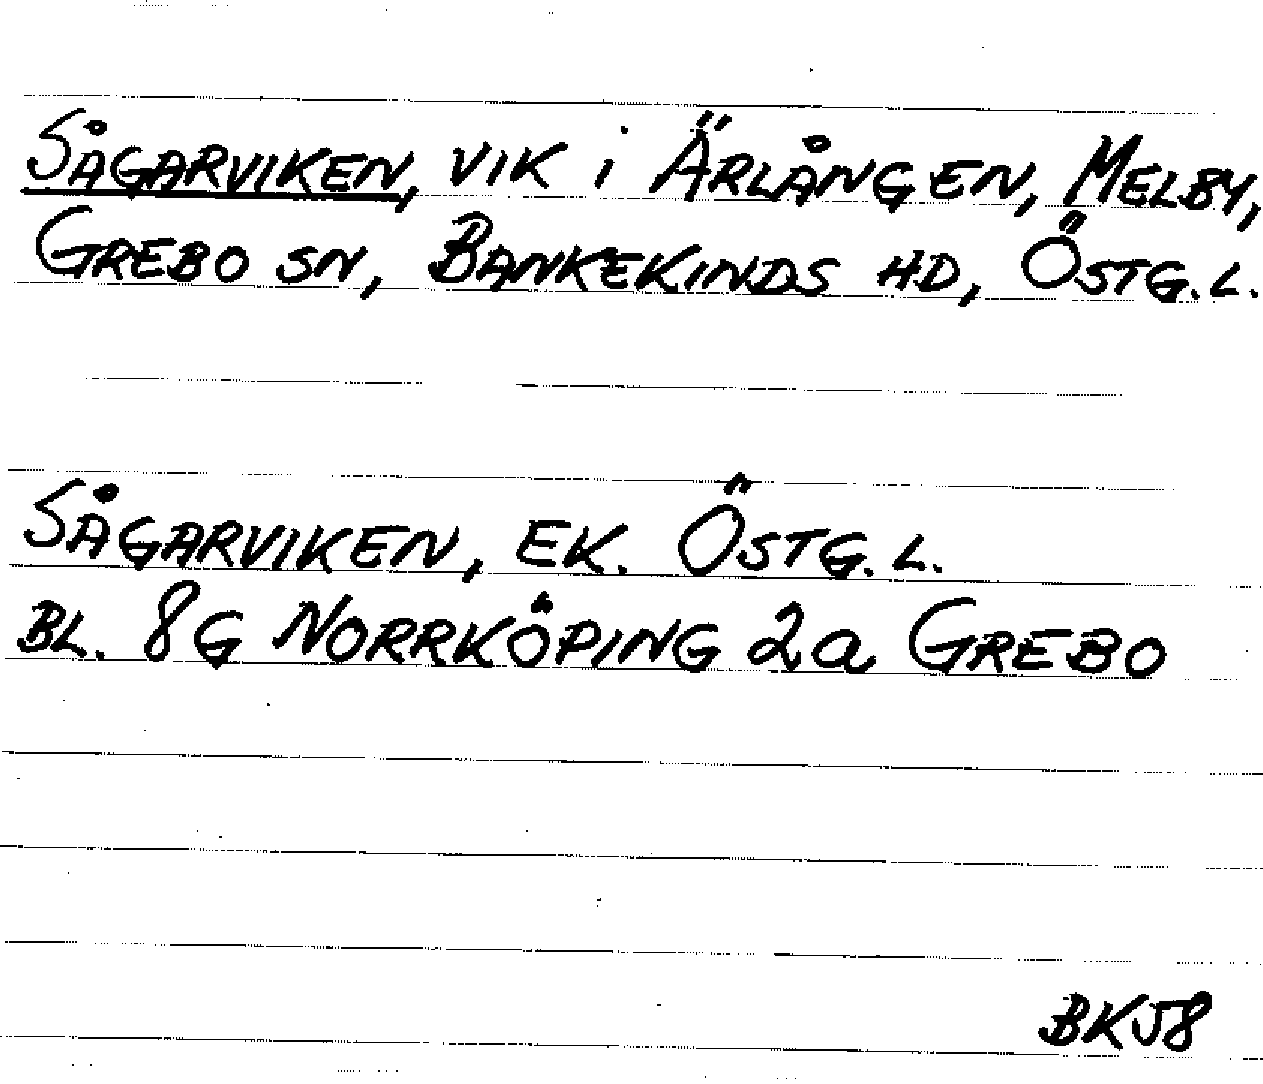 Sågarviken, vik i Ärlången, Melby,
Grebo sn, Bankekinds hd, Östg.l.
Sågarviken, ek. Östg.l.
bl. 8G Norrköping 2a Grebo
BKJ8